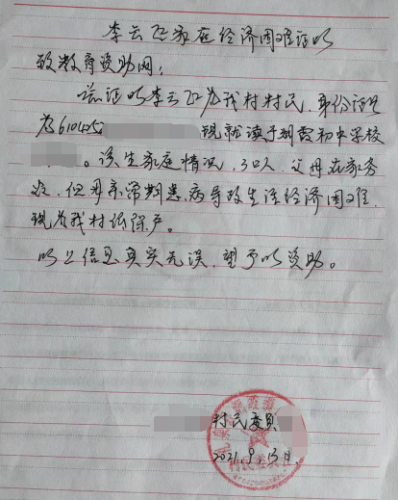 李云飞家庭经济困难证明
致教育资助网：
兹证明李云飞为我村村民，身份证号
为610425 现就读于 初中学校
。该生家庭情况，3口人，父母在家务
农，但母亲常期患病导致生活经济困难，
现为我村低保户。
以上信息真实无误，望予以资助。
村民委员
2021.9.13日